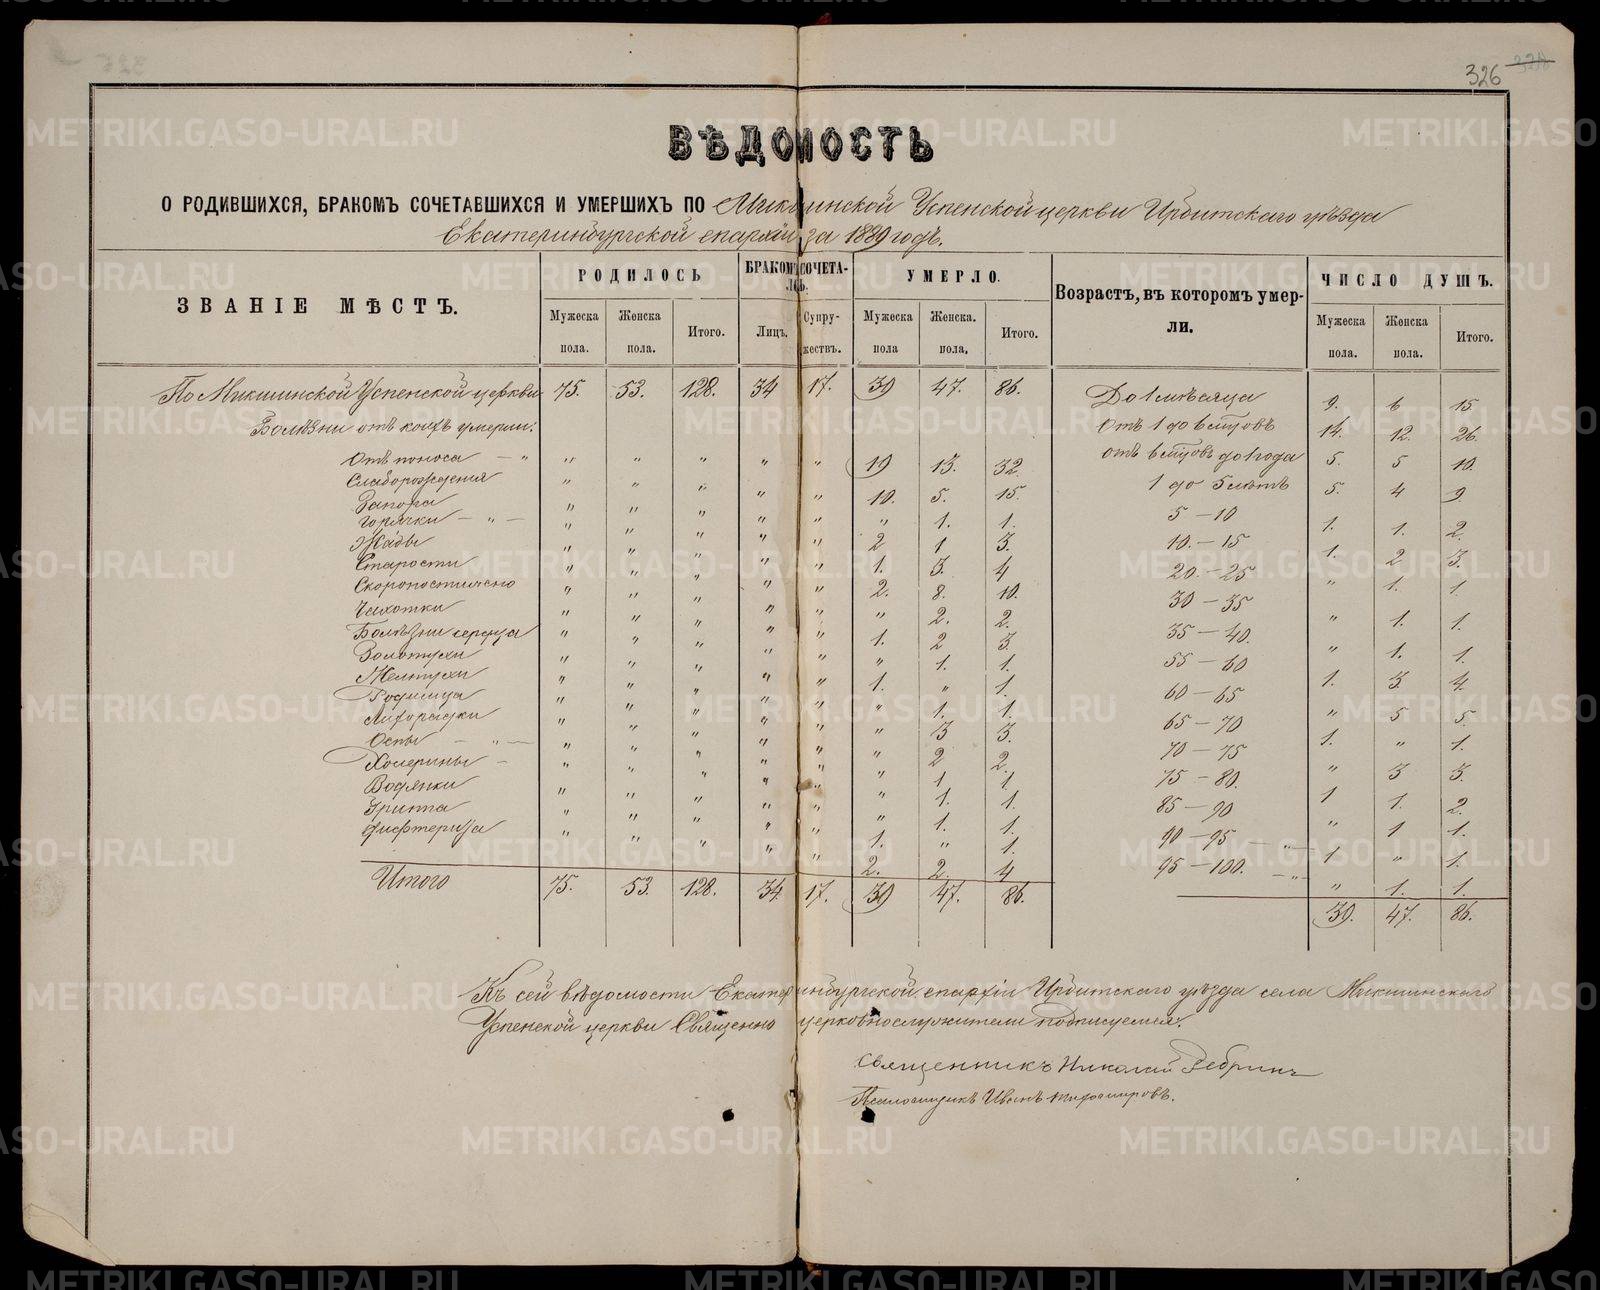 326 328
ВѢДОМОСТЬ
О РОДИВШИХСЯ, БРАКОМЪ СОЧЕТАВШИХСЯ И УМЕРШИХЪ ПО Микшинской Успенской церкви Ирбитскаго уѣзда
Екатеринбургской епархіи за 1889 годъ.
ЗВАНІЕ МѢСТЪ. РОДИЛОСЬ БРАКОМЪ СОЧЕТАЛОСЬ. УМЕРЛО. Возрастъ, въ которомъ умерли. ЧИСЛО ДУШЪ.
Мужеска пола. Женска пола. Итого. Лицъ. Супружествъ. Мужеска пола Женска. пола, Итого. Мужеска пола. Женска пола. Итого.
По Микшинской Успенской церкви 75. 53. 128. 34 17. 39 47. 86. До 1 мѣсяца 9. 6 15.
Болѣзни отъ коихъ умерли: Отъ 1 до 6 мѣсцовъ 14. 12. 26.
Отъ поноса — " " " " " " 19 13. 32. отъ 6 мѣсцовъ до 1 года 5. 5 10.
Слаборожденія " " " " " 10. 5. 15. 1 до 5 лѣтъ 5. 4 9.
Запора " " " " " " 1. 1. 5 — 10 1. 1. 2.
Горячки — " — " " " " " 2 1 3. 10. — 15 1. 2 3.
Жабы " " " " " 1. 3. 4 20. — 25 " 1. 1.
Старости " " " " " 2. 8. 10. 30 — 35 " 1. 1.
Скоропостижно " " " " " " 2. 2. 35 — 40. " 1. 1.
Чахотки " " " " " 1. 2 3. 55 — 60 1. 3. 4.
Болѣзни сердца " " " " " " 1. 1. 60 — 65 " 5 5.
Золотухи " " " " " 1. " 1. 65 — 70 1. " 1.
Желтухи " " " " " " 1. 1. 70 — 75 " 3 3.
Родимца " " " " " " 3 3. 75 — 80. 1 1. 2.
Лихорадки " " " " " " 2 2. 85 — 90 " 1 1.
Оспы — " — " " " " " " 1 1 90 — 95 — " — 1 " 1.
Холерины — " " " " " " 1. 1. 95 — 100. — " — " 1. 1.
Водянки " " " " " " 1. 1.
Гриппа " " " " " 1. " 1.
Дифтерита " " " " " 2. 2. 4
Итого 75. 53. 128. 34. 17. 39 47. 86. 39. 47. 86.
Къ сей вѣдомости Екатеринбургской епархіи Ирбитскаго уѣзда села Микшинскаго
Успенской церкви Священно церковнослужители подписуемся:
Священникъ Николай Ребринъ
Псаломщикъ Иванъ
METRIKI.GASO-URAL.RU